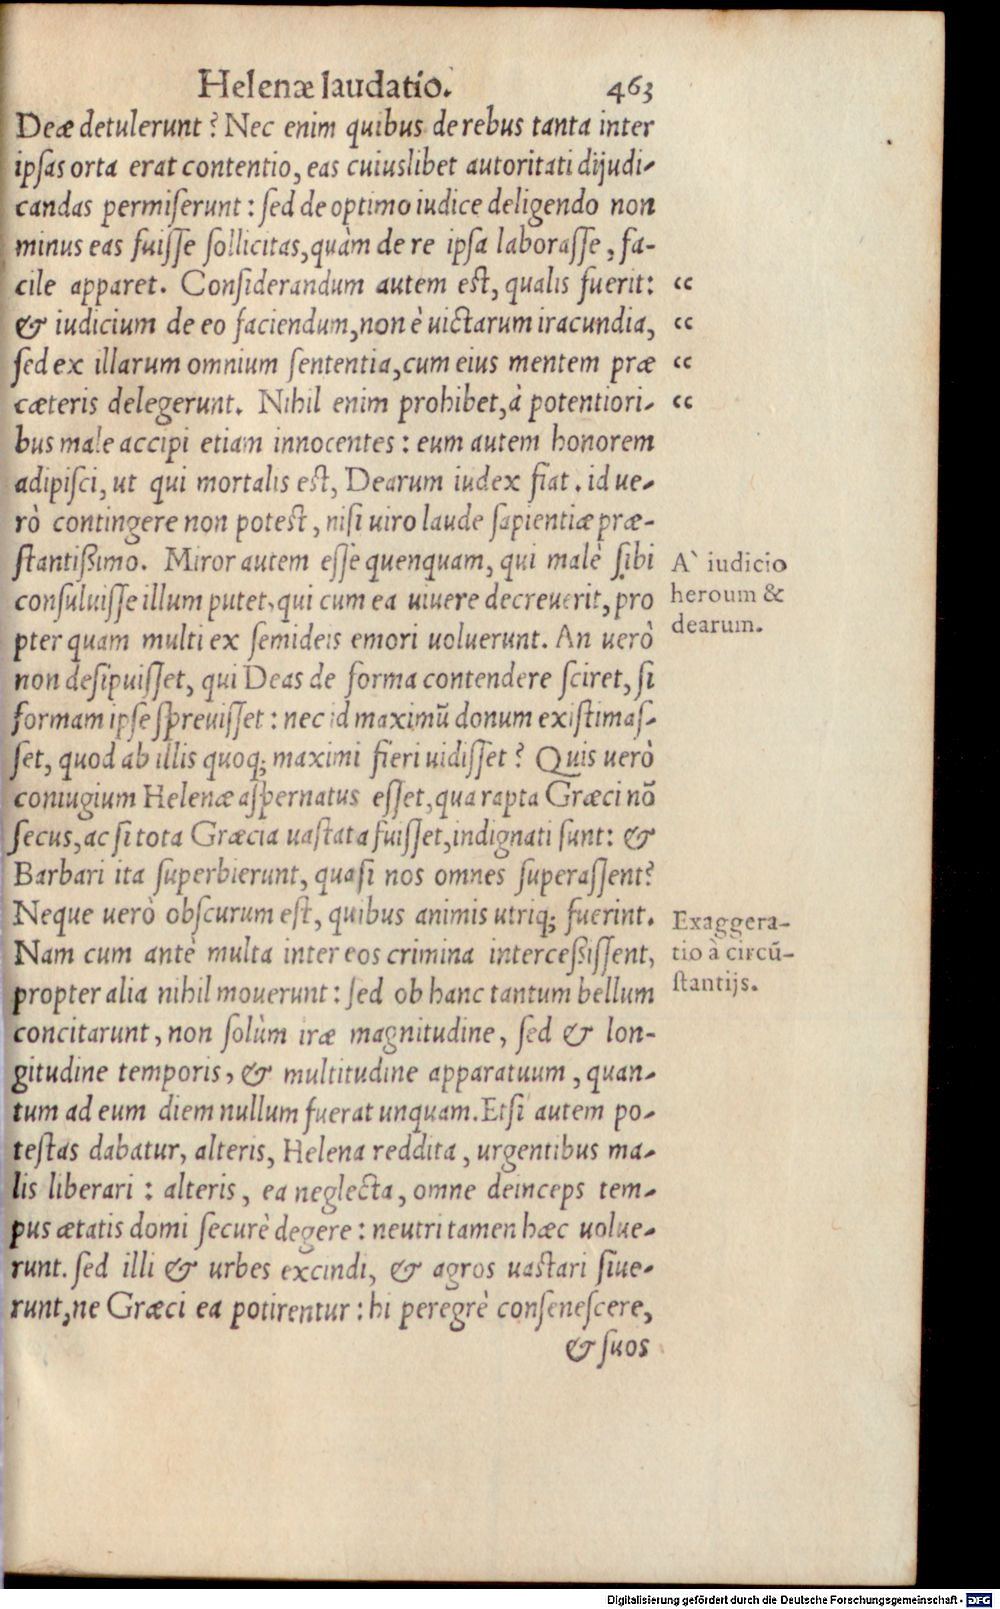 Helenæ laudatio. 463
Deæ detulerunt? Nec enim quibus de rebus tanta inter
ipsas orta erat contentio, eas cuiuslibet autoritati dijudi-
candas permiserunt: sed de optimo iudice deligendo non
minus eas fuisse sollicitas, quàm de re ipsa laborasse, fa-
cile apparet. Considerandum autem est, qualis fuerit: cc
& iudicium de eo faciendum, non è uictarum iracundia, cc
sed ex illarum omnium sententia, cum eius mentem præ cc
cæteris delegerunt. Nihil enim prohibet, à potentiori- cc
bus male accipi etiam innocentes: eum autem honorem
adipisci, ut qui mortalis est, Dearum iudex fiat. id ue-
rò contingere non potest, nisi uiro laude sapientiæ præ-
stantißimo. Miror autem esse quenquam, qui malè sibi
consuluisse illum putet, qui cum ea uiuere decreuerit, pro
pter quam multi ex semideis emori uoluerunt. An uerò
non desipuisset, qui Deas de forma contendere sciret, si
formam ipse spreuisset: nec id maximū donum existimas-
set, quod ab illis quoq; maximi fieri uidisset? Quis uerò
coniugium Helenæ aspernatus esset, qua rapta Græci nō
secus, ac si tota Græcia uastata fuisset, indignati sunt: &
Barbari ita superbierunt, quasi nos omnes superassent?
Neque uerò obscurum est, quibus animis utriq; fuerint.
Nam cum antè multa inter eos crimina interceßissent,
propter alia nihil mouerunt: sed ob hanc tantum bellum
concitarunt, non solùm iræ magnitudine, sed & lon-
gitudine temporis, & multitudine apparatuum, quan-
tum ad eum diem nullum fuerat unquam. Etsi autem po-
testas dabatur, alteris, Helena reddita, urgentibus ma-
lis liberari: alteris, ea neglecta, omne deinceps tem-
pus ætatis domi securè degere: neutri tamen hæc uolue-
runt. sed illi & urbes excindi, & agros uastari siue-
runt, ne Græci ea potirentur: hi peregrè consenescere,
& suos
A` iudicio
heroum &
dearum.
Exaggera-
tio à circū-
stantijs.
Digitalisierung gefördert durch die Deutsche Forschungsgemeinschaft - DFG